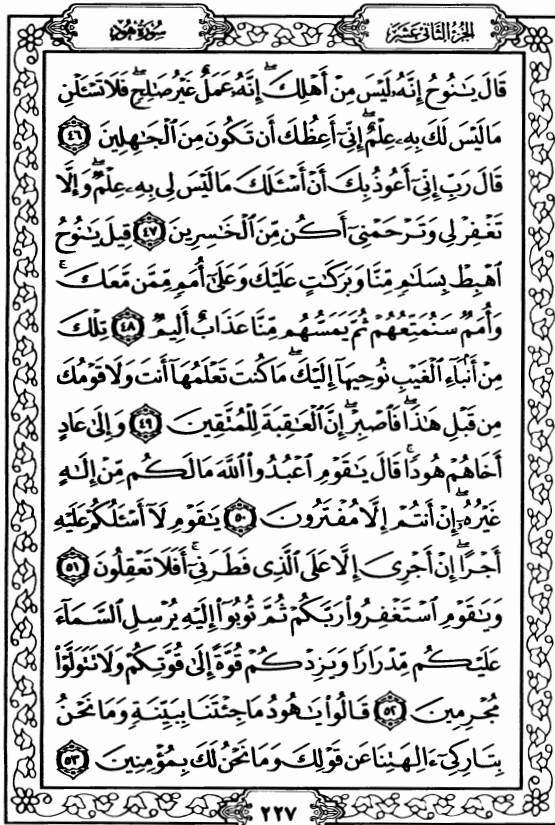 سُورَةُ هُودٍ
الجُزْءُ الثَّانِي عَشَرَ
قَالَ يَـٰنُوحُ إِنَّهُۥ لَيْسَ مِنْ أَهْلِكَ ۖ إِنَّهُۥ عَمَلٌ غَيْرُ صَـٰلِحٍ ۖ فَلَا تَسْـَٔلْنِ
مَا لَيْسَ لَكَ بِهِۦ عِلْمٌ ۖ إِنِّىٓ أَعِظُكَ أَن تَكُونَ مِنَ ٱلْجَـٰهِلِينَ ٤٦
قَالَ رَبِّ إِنِّىٓ أَعُوذُ بِكَ أَنْ أَسْـَٔلَكَ مَا لَيْسَ لِى بِهِۦ عِلْمٌ ۖ وَإِلَّا
تَغْفِرْ لِى وَتَرْحَمْنِىٓ أَكُن مِّنَ ٱلْخَـٰسِرِينَ ٤٧ قِيلَ يَـٰنُوحُ
ٱهْبِطْ بِسَلَـٰمٍ مِّنَّا وَبَرَكَـٰتٍ عَلَيْكَ وَعَلَىٰٓ أُمَمٍ مِّمَّن مَّعَكَ ۚ
وَأُمَمٌ سَنُمَتِّعُهُمْ ثُمَّ يَمَسُّهُم مِّنَّا عَذَابٌ أَلِيمٌ ٤٨ تِلْكَ
مِنْ أَنۢبَآءِ ٱلْغَيْبِ نُوحِيهَآ إِلَيْكَ ۖ مَا كُنتَ تَعْلَمُهَآ أَنتَ وَلَا قَوْمُكَ
مِن قَبْلِ هَـٰذَا ۖ فَٱصْبِرْ ۖ إِنَّ ٱلْعَـٰقِبَةَ لِلْمُتَّقِينَ ٤٩ وَإِلَىٰ عَادٍ
أَخَاهُمْ هُودًا ۚ قَالَ يَـٰقَوْمِ ٱعْبُدُوا۟ ٱللَّهَ مَا لَكُم مِّنْ إِلَـٰهٍ
غَيْرُهُۥٓ ۖ إِنْ أَنتُمْ إِلَّا مُفْتَرُونَ ٥٠ يَـٰقَوْمِ لَآ أَسْـَٔلُكُمْ عَلَيْهِ
أَجْرًا ۖ إِنْ أَجْرِىَ إِلَّا عَلَى ٱلَّذِى فَطَرَنِىٓ ۚ أَفَلَا تَعْقِلُونَ ٥١
وَيَـٰقَوْمِ ٱسْتَغْفِرُوا۟ رَبَّكُمْ ثُمَّ تُوبُوٓا۟ إِلَيْهِ يُرْسِلِ ٱلسَّمَآءَ
عَلَيْكُم مِّدْرَارًا وَيَزِدْكُمْ قُوَّةً إِلَىٰ قُوَّتِكُمْ وَلَا تَتَوَلَّوْا۟
مُجْرِمِينَ ٥٢ قَالُوا۟ يَـٰهُودُ مَا جِئْتَنَا بِبَيِّنَةٍ وَمَا نَحْنُ
بِتَارِكِىٓ ءَالِهَتِنَا عَن قَوْلِكَ وَمَا نَحْنُ لَكَ بِمُؤْمِنِينَ ٥٣
٢٢٧